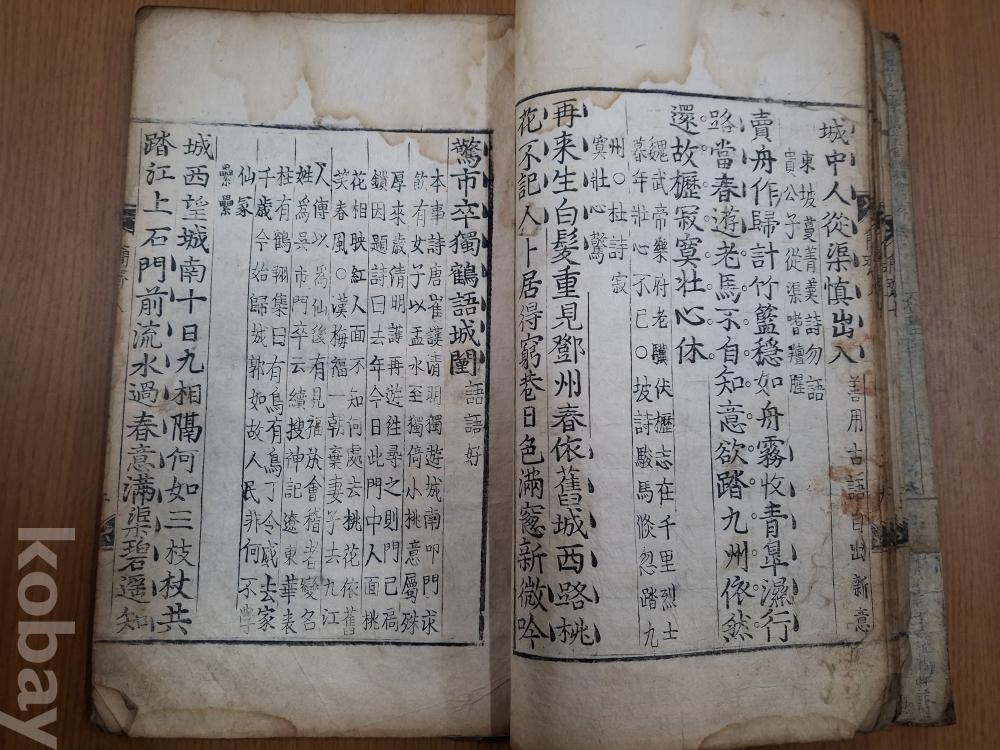 城中人從渠慎出入
善用古語自出新意
東坡蔓菁羹詩勿語
貴公子從渠嗜羶腥
賣舟作歸計竹籃穩如舟霧收青皐濕行
路當春遊老馬不自知意欲踏九州依然
還故櫪寂寞壯心休
魏武帝樂府老驥伏櫪志在千里烈士
暮年壯心不已○坡詩駿馬倐忽踏九
州○杜詩寂
寞壯心驚
再来生白髮重見鄧州春依舊城西路桃
花不記人卜居得窮巷日色滿窓新微吟
驚市卒獨鶴語城闉
語語好
本事詩唐崔護清明獨遊城南叩門求
飮有女子以盂水至獨倚小桃意屬殊
厚来歲清明護再遊往尋之則門已扃
鎖因題詩曰去年今日此門中人面桃
花相映紅人面不知何處去桃花依舊
笑春風○漢梅福一朝棄妻子去九江
人傳以爲仙後有見福於會稽者變名
姓爲吳市門卒云續搜神記遼東華表
柱有鶴翔集曰有鳥有鳥丁令威去家
千歲今始歸城郭如故人民非何不學
仙冢
纍纍
城西望城南十日九相隔何如三枝杖共
踏江上石門前流水過春意滿渠碧遥知
kobay